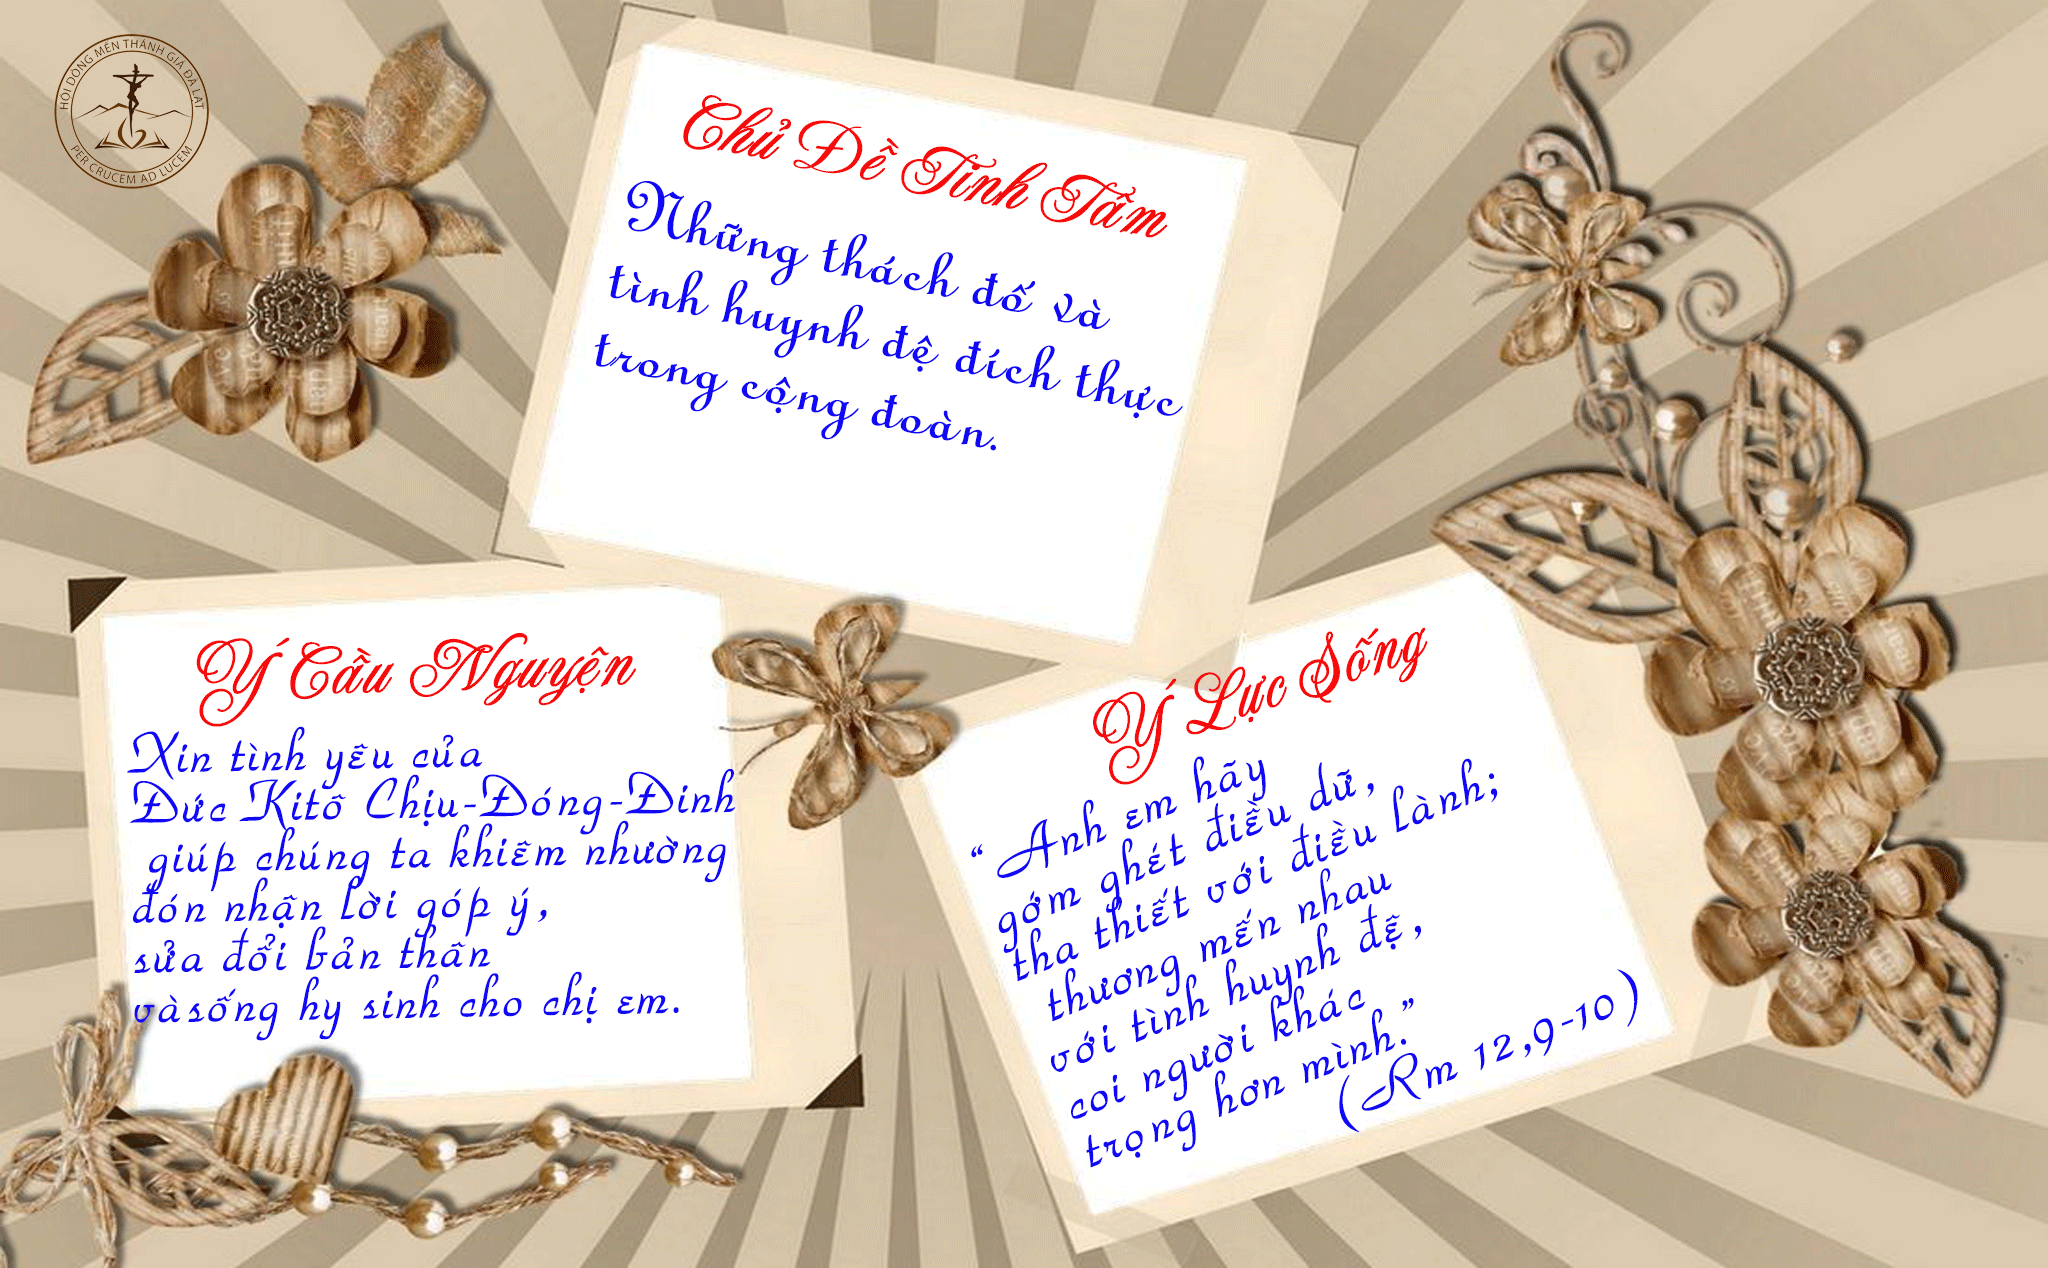 HỘI DÒNG MẾN THÁNH GIÁ ĐÀ LẠT
PER CRUCEM AD LUCEM
Chủ Đề Tĩnh Tâm
Những thách đố và
tình huynh đệ đích thực
trong cộng đoàn.
Ý Cầu Nguyện
Xin tình yêu của
Đức Kitô Chịu-Đóng-Đinh
giúp chúng ta khiêm nhường
đón nhận lời góp ý,
sửa đổi bản thân
vàsống hy sinh cho chị em.
Ý Lực Sống
“ Anh em hãy
gớm ghét điều dữ,
tha thiết với điều lành;
thương mến nhau
với tình huynh đệ,
coi người khác
trọng hơn mình.”
(Rm 12,9-10)